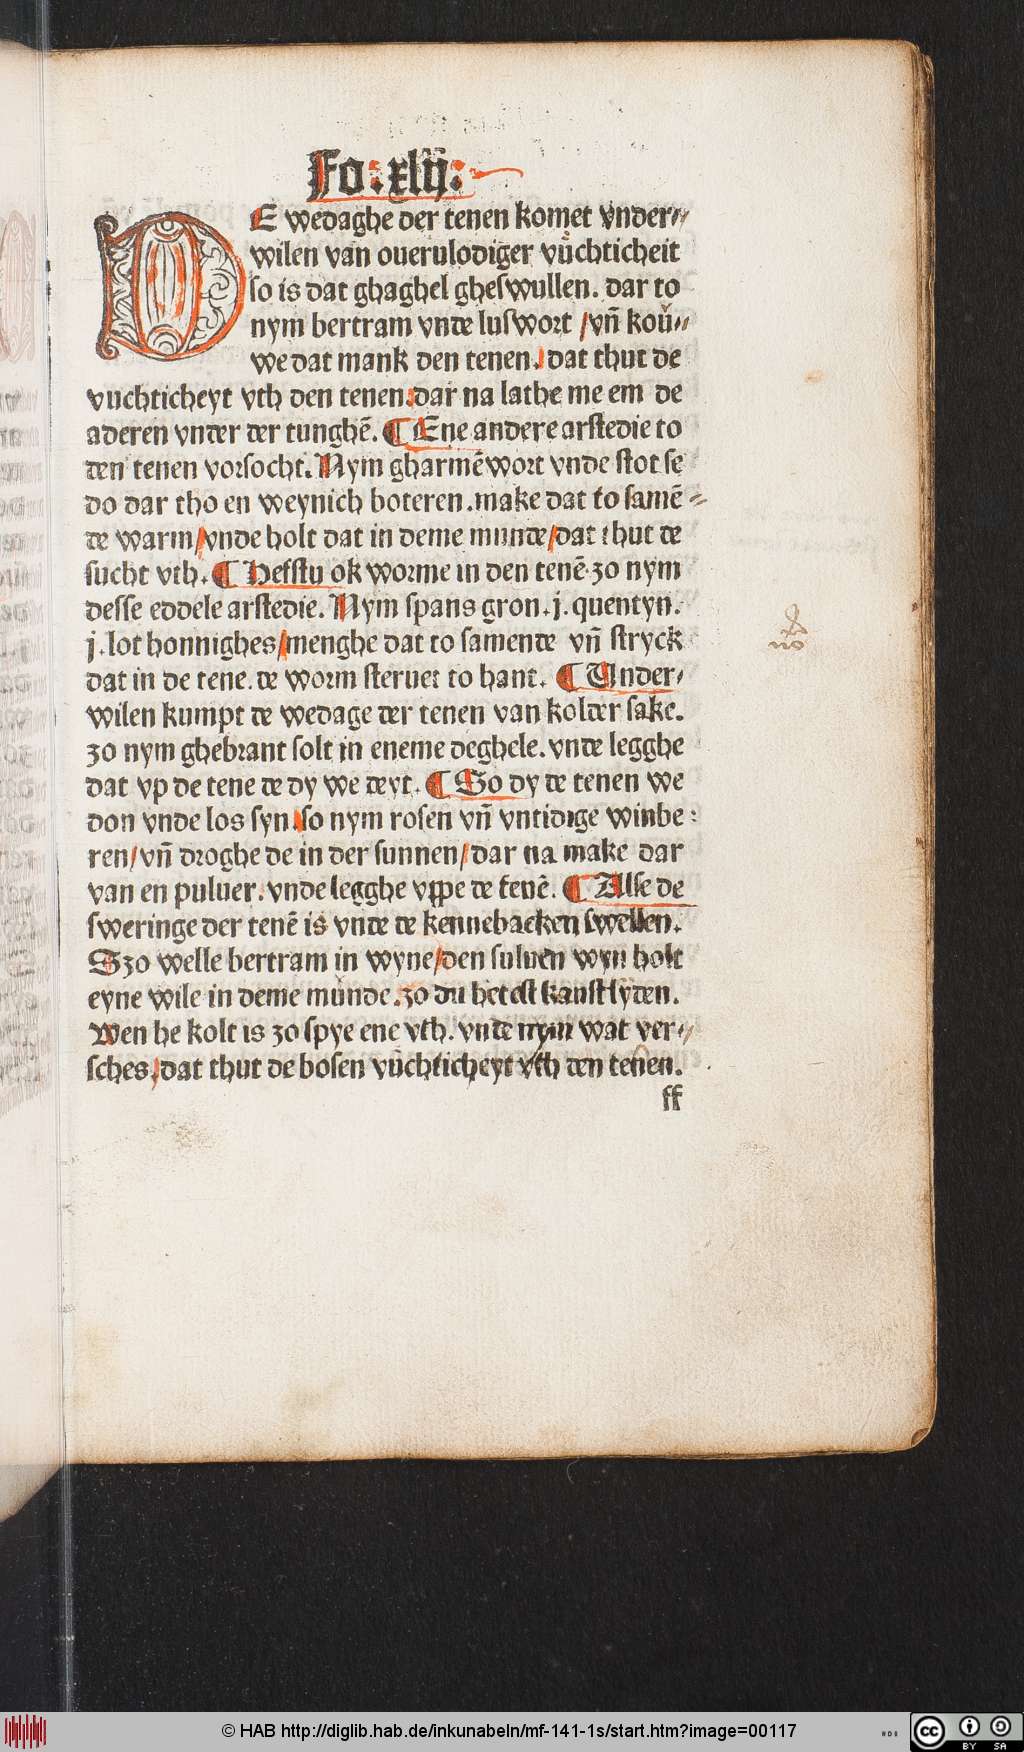 Fo. xlij.
DE wedaghe der tenen komet vnder⸗
wilen van ouerulodiger vuͤchticheit
so is dat ghaghel gheswullen. dar to
nym bertram vnde luswort / vn̄ koͤu⸗
we dat mank den tenen. dat thut de
vuchticheyt vth den tenen. dar na lathe me em de
aderen vnder der tunghē. ¶ Ene andere arstedie to
den tenen vorsocht. Nym gharmēwort vnde stot se
do dar tho en weynich boteren. make dat to samē⸗
de warm / vnde holt dat in deme munde / dat thut de
sucht vth. ¶ Hefstu ok worme in den tenē. zo nym
desse eddele arstedie. Nym spans gron. j. quentyn.
j. lot honnighes / menghe dat to samende vn̄ stryck
dat in de tene. de worm steruet to hant. ¶ Vnder⸗
wilen kumpt de wedage der tenen van kolder sake.
zo nym ghebrant solt in eneme deghele. vnde legghe
dat vp de tene de dy we deyt. ¶ So dy de tenen we
don vnde los syn. so nym rosen vn̄ vntidige winbe⸗
ren / vn̄ droghe de in der sunnen / dar na make dar
van en puluer. vnde legghe vppe de tenē. ¶ Alse de
sweringe der tenē is vnde de kennebacken swellen.
Szo welle bertram in wyne / den suluen wyn holt
eyne wile in deme munde. zo du hetest kanst lyden.
Wen he kolt is zo spye ene vth. vnde nym wat ver⸗
sches. dat thut de bosen vuͤchticheyt vth den tenen.
ff
© HAB http://diglib.hab.de/inkunabeln/mf-141-1s/start.htm?image=00117
HAB
cc BY SA